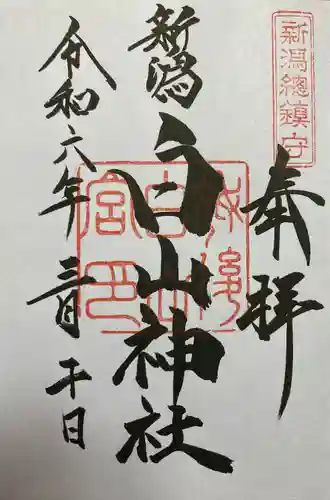 新潟總鎮守
奉拝
新潟
白山神社
令和六年三月二十日